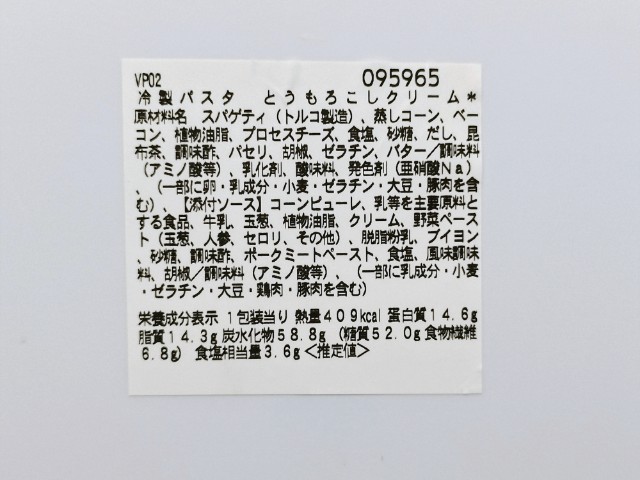 VP02 095965
冷製パスタ とうもろこしクリーム*
原材料名 スパゲティ(トルコ製造)、蒸しコーン、ベー
コン、植物油脂、プロセスチーズ、食塩、砂糖、だし、昆
布茶、調味酢、パセリ、胡椒、ゼラチン、バター/調味料
(アミノ酸等)、乳化剤、酸味料、発色剤(亜硝酸Na)
、(一部に卵・乳成分・小麦・ゼラチン・大豆・豚肉を含
む)、【添付ソース】コーンピューレ、乳等を主要原料と
する食品、牛乳、玉葱、植物油脂、クリーム、野菜ペース
ト(玉葱、人参、セロリ、その他)、脱脂粉乳、ブイヨン
、砂糖、調味酢、ポークミートペースト、食塩、風味調味
料、胡椒/調味料(アミノ酸等)、(一部に乳成分・小麦
・ゼラチン・大豆・鶏肉・豚肉を含む)
栄養成分表示 1包装当り 熱量409kcal 蛋白質14.6g
脂質14.3g 炭水化物58.8g (糖質52.0g 食物繊維
6.8g) 食塩相当量3.6g<推定値>